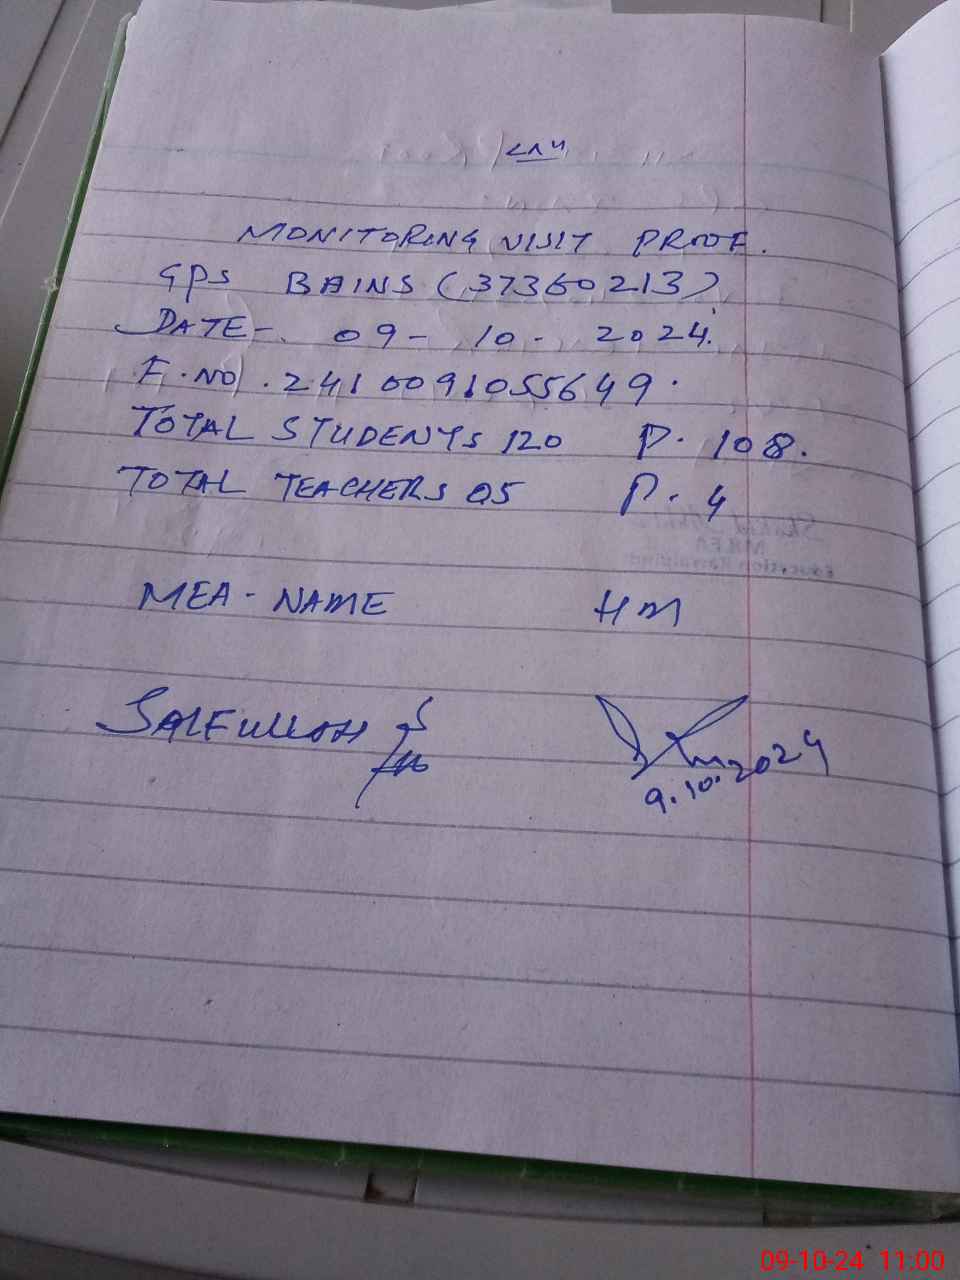 MONITORING VISIT PROOF.
GPS BAINS (37360213)
DATE-. 09- 10- 2024.
F.NO .2410091055649.
TOTAL STUDENTS 120 P. 108.
TOTAL TEACHERS 05 P. 4
MEA- NAME HM
SAIFULLAH
9.10.2024
09-10-24 11:00